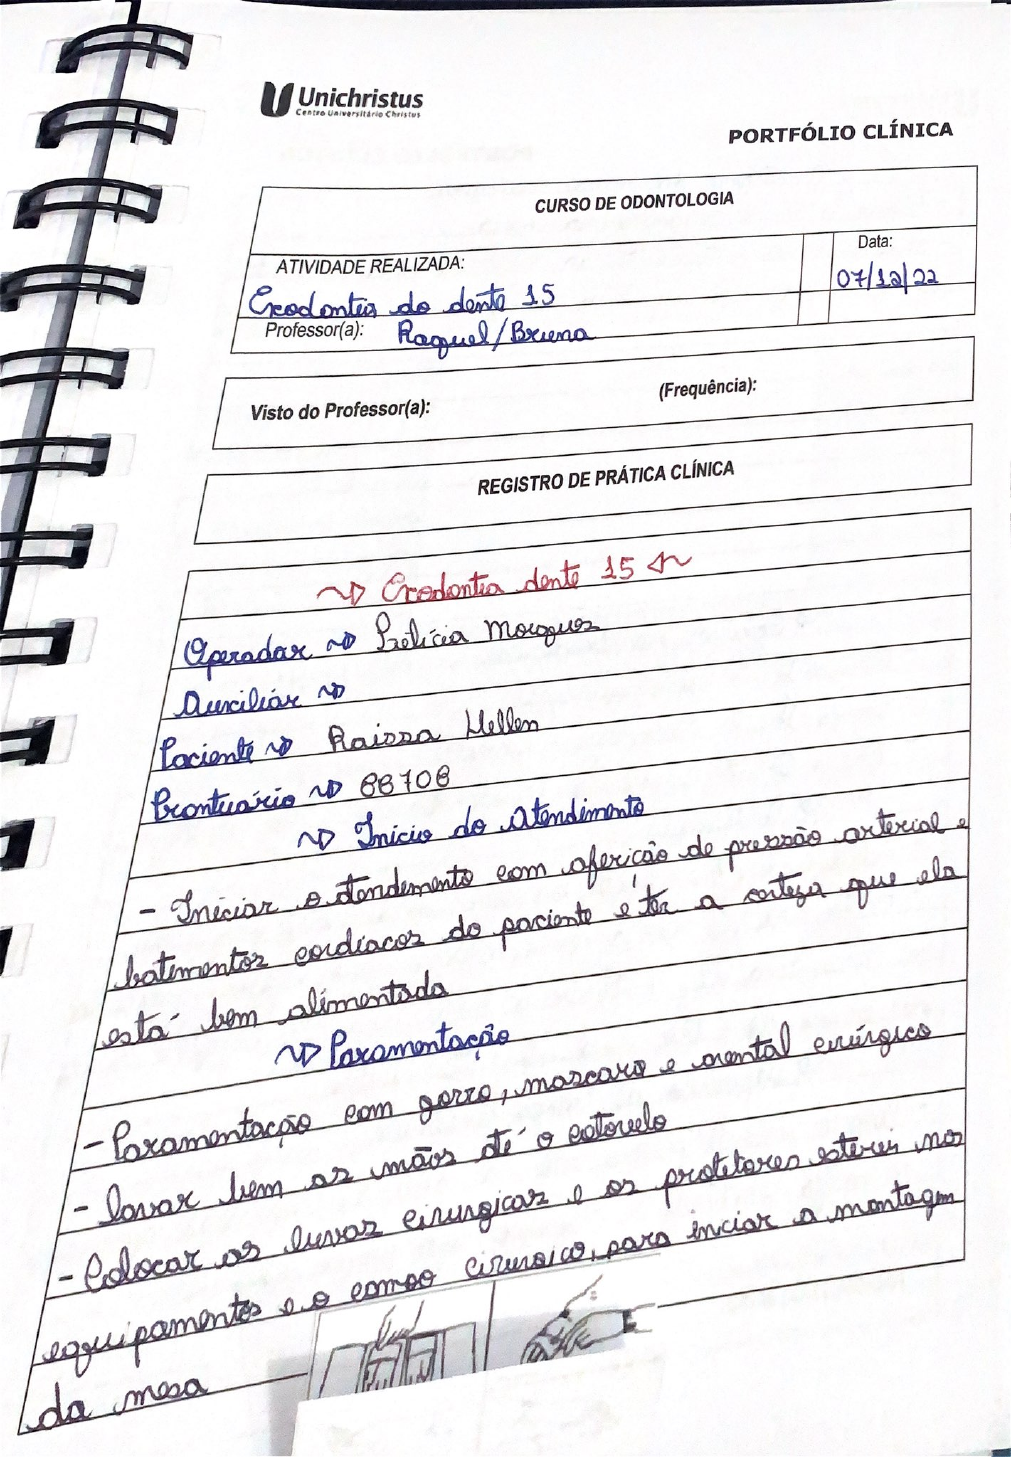 Unichristus
Centro Universitário Christus
PORTFÓLIO CLÍNICA
CURSO DE ODONTOLOGIA
ATIVIDADE REALIZADA:
Data:
Exodontia do dente 15
07/12/22
Professor(a): Raquel/Bruna
Visto do Professor(a):
(Frequência):
REGISTRO DE PRÁTICA CLÍNICA
Exodontia dente 15
Operador Letícia Marques
Auxiliar
Paciente Raissa Hellen
Prontuário 88708
Início do Atendimento
- Iniciar o atendimento com aferição de pressão arterial e
batimentos cardíacos do paciente e ter a certeza que ela
está bem alimentada
Paramentação
- Paramentação com gorro, mascara e avental cirúrgico
- lavar bem as mãos até o cotovelo
- Colocar as luvas cirurgicas e os protetores estereis nos
equipamentos e o campo cirurgico, para inciar a montagem
da mesa